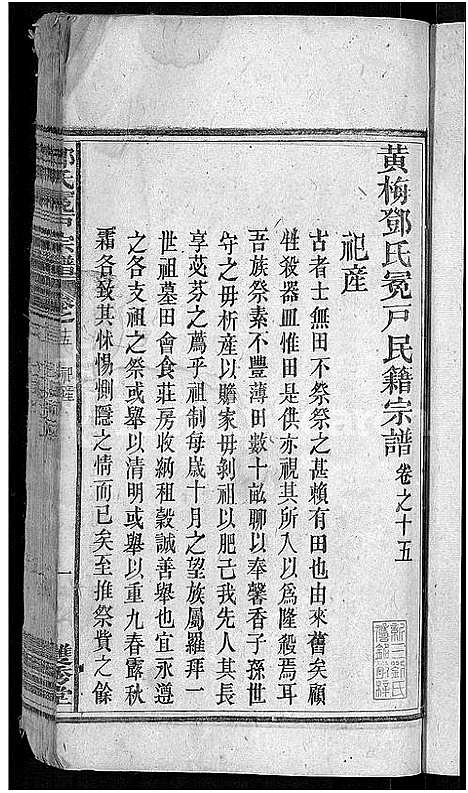 黄梅鄧氏冕戸民籍宗譜 卷之十五
祀産
古者士無田不祭祭之甚賴有田也由來舊矣顧
牲殺器皿惟田是供亦視其所入以爲隆殺焉耳
吾族祭素不豐薄田數十畝聊以奉馨香子孫世
守之毋析産以贍家毋剥祖以肥己我先人其長
享苾芬之薦乎祖制每歲十月之望族屬羅拜一
世祖墓田會食莊房收納租穀誠善舉也宜永遵
之各支祖之祭或舉以清明或舉以重九春露秋
霜各致其怵惕惻隱之情而已矣至推祭貲之餘
鄧氏冕戸宗譜 卷之十五 祀産 一